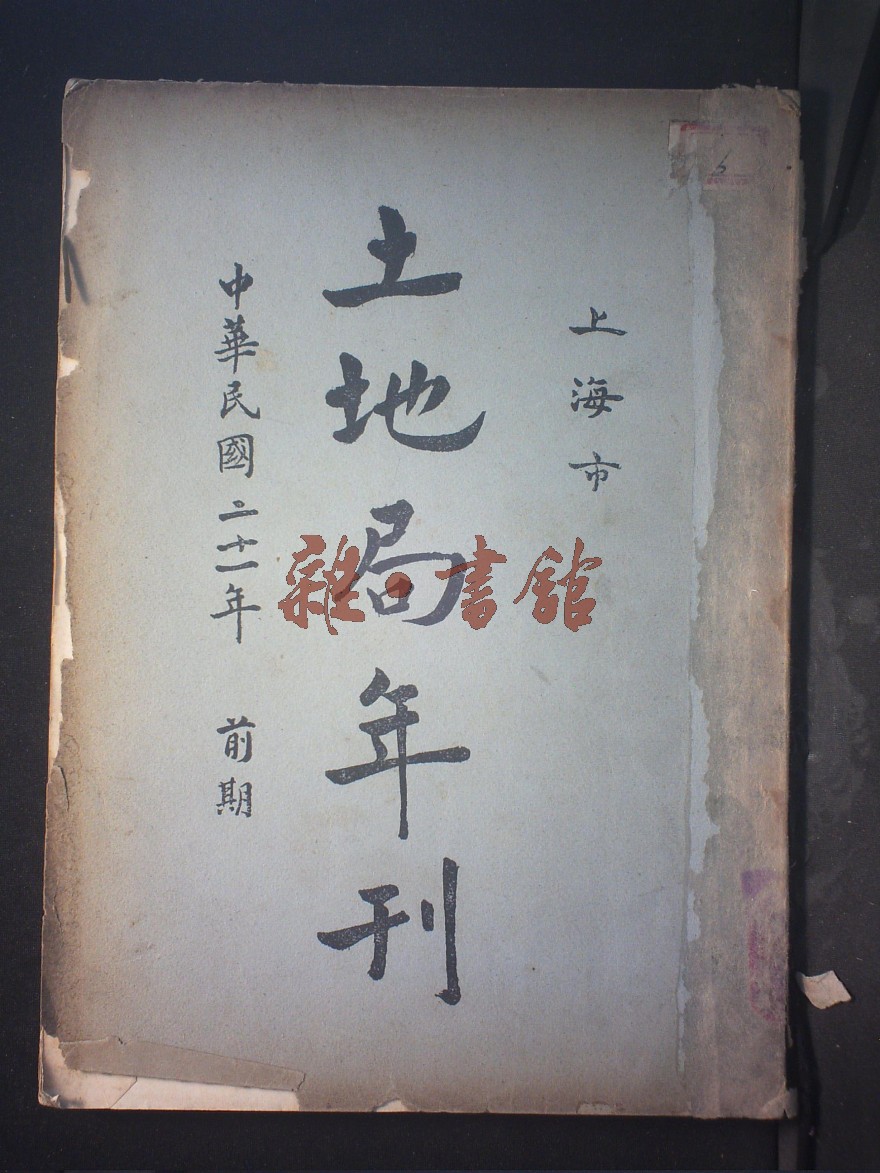 上海市
土地局年刊
中華民國二十一年 前期
雜·書館